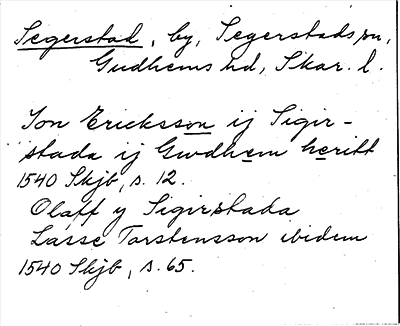 Segerstad, by, Segerstads sn,
Gudhems hd, Skar. l.
Jon Ericksson ij Sigir-
stada ij Gwdhem heritt
1540 Skjb, s. 12.
Olaff y Sigirstada
Lasse Torstensson ibidem
1540 Skjb, s. 65.